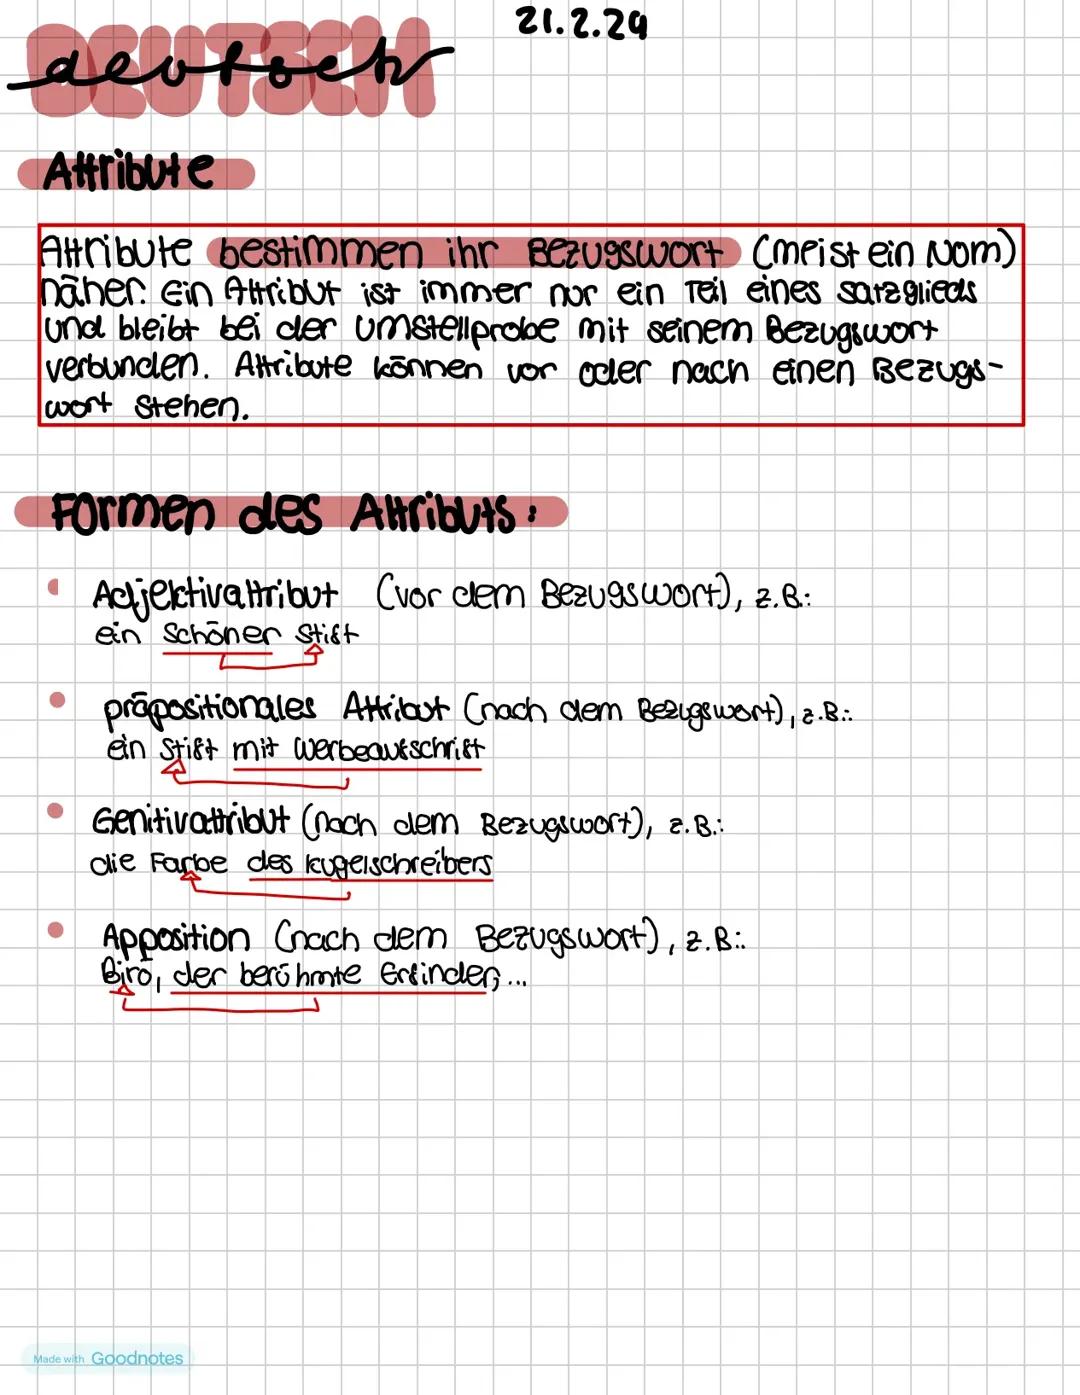 21.2.24
DEUTSCH
deutsch
Attribute
Attribute bestimmen ihr Bezugswort (meist ein Nom)
näher. Ein Attribut ist immer nur ein Teil eines satzglieds
und bleibt bei der Umstellprobe mit seinem Bezugswort
verbunden. Attribute können vor oder nach einen Bezugs-
wort stehen.
Formen des Attributs:
• Adjektivattribut (vor dem Bezugswort), z.B.:
ein schöner Stift
• präpositionales Attribut (nach dem Bezugswort), z.B.:
ein Stift mit Werbeaufschrift
• Genitivattribut (nach dem Bezugswort), z.B.:
die Farbe des kugelschreibers
• Apposition (nach dem Bezugswort), z.B.:
Biró, der berühmte Erfinder, ...
Made with Goodnotes